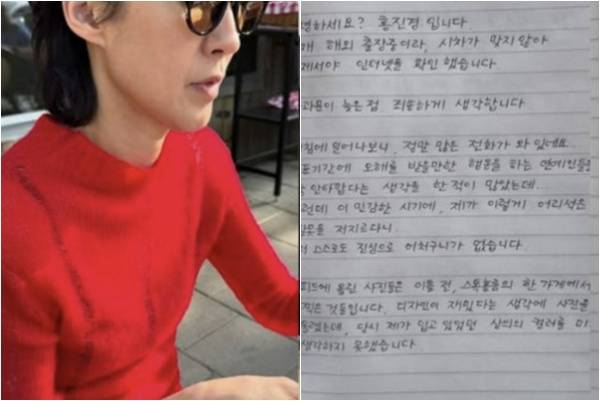 녕하세요? 홍진경입니다
해외 출장중이라, 시차가 맞지 않아
제서야 인터넷을 확인했습니다.
과문이 늦은점 죄송하게 생각합니다
침에 일어나보니, 정말 많은 전화가 와 있데요..
표기간에 오해를 받을만한 행동을 하는 연예인들을
안타깝다는 생각을 한 적이 많았는데..
런데 이 민감한 시기에, 제가 이렇게 어리석은
잘못을 저지르다니.
스스로도 진심으로 어처구니가 없습니다.
피드에 올린 사진들은 이틀 전, 스톡홀름의 한 가게에서
찍은 것들입니다. 디자인이 재밌다는 생각에 사진을
올렸는데, 당시 제가 입고 있었던 상의의 컬러를 미
생각하지 못했습니다.